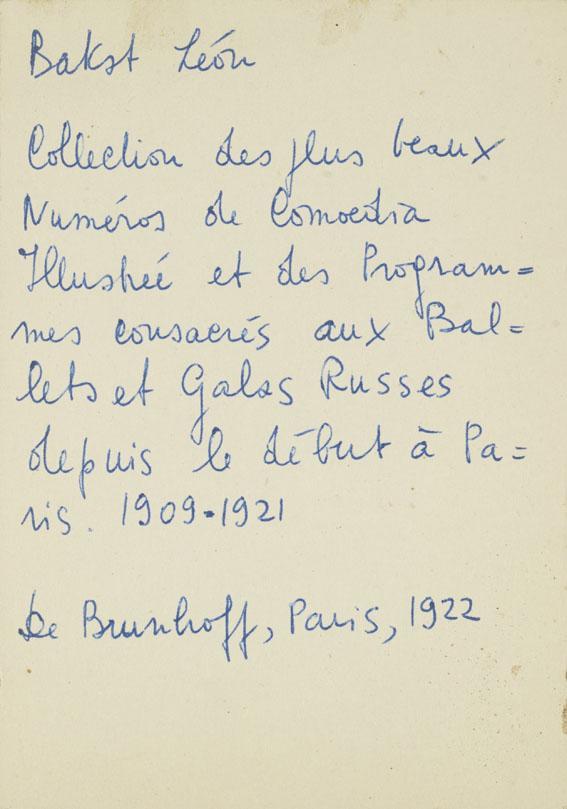 Bakst Léon
Collection des plus beaux
Numéros de Comoedia
Illustrée et des Program=
mes consacrés aux Bal=
lets et Galas Russes
depuis le début à Pa=
ris. 1909-1921
De Brunhoff, Paris, 1922